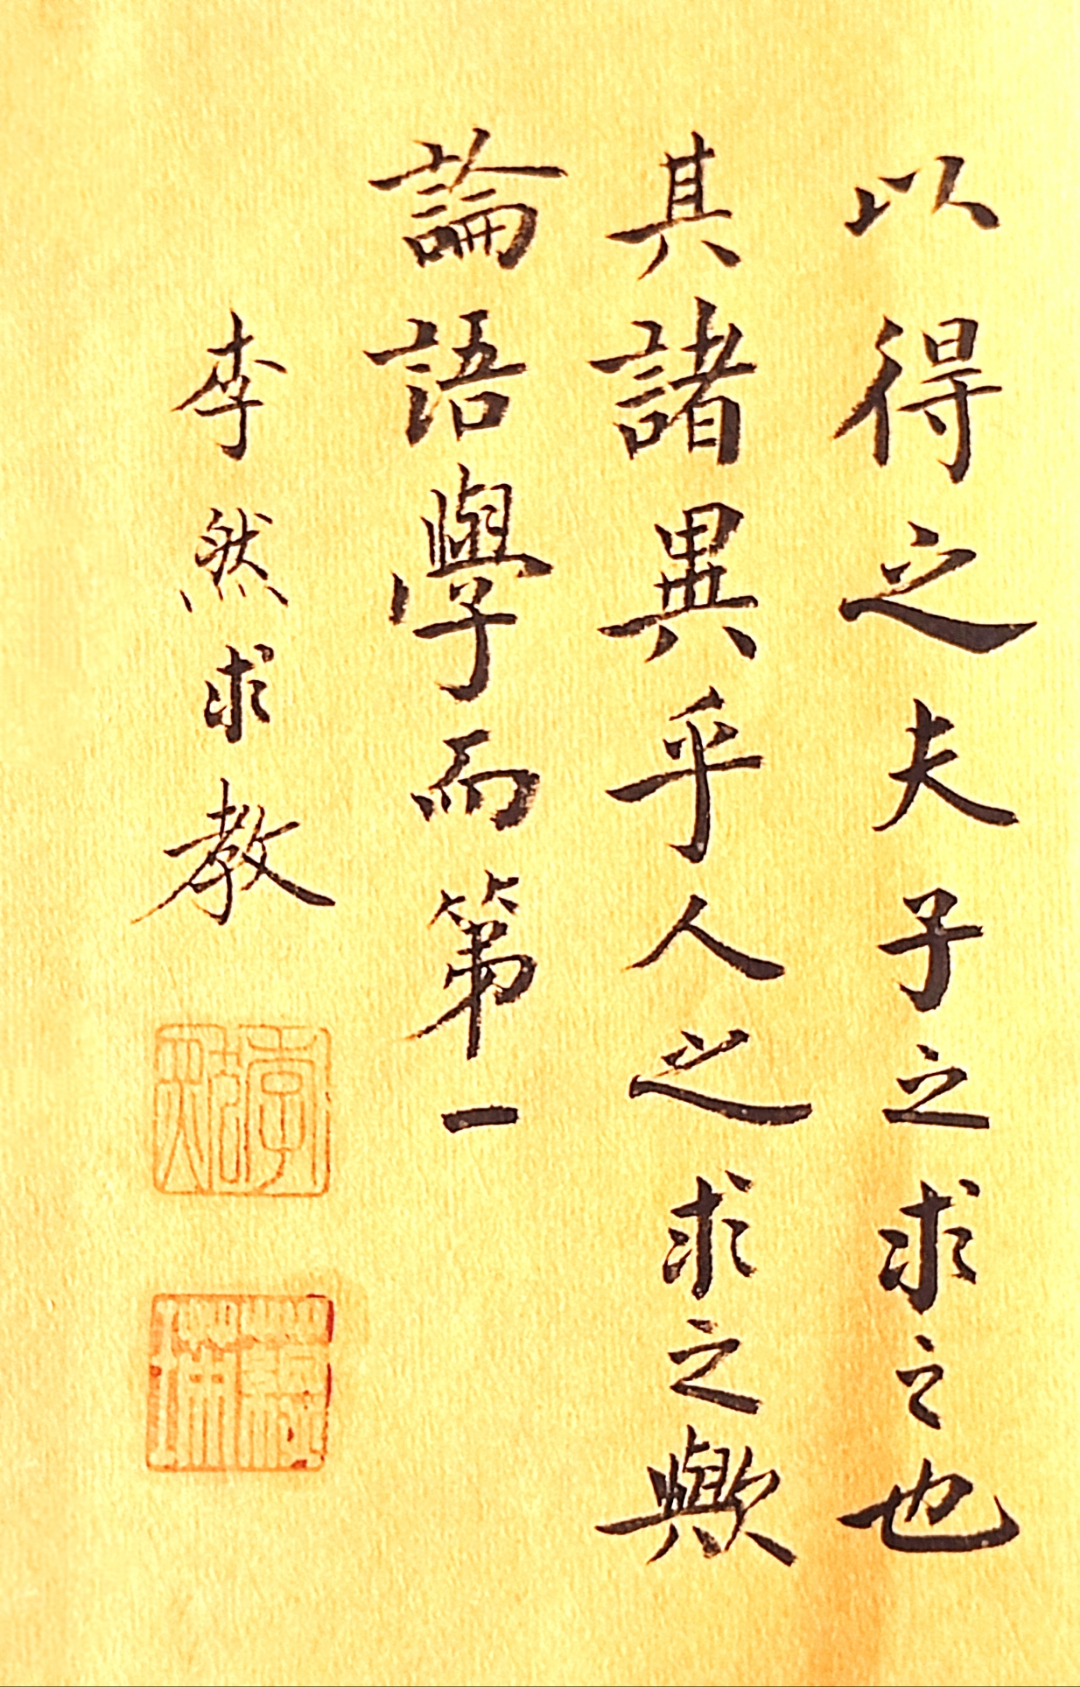 以得之夫子之求之也
其諸異乎人之求之歟
論語學而第一
李然求教